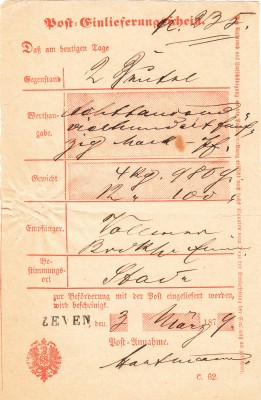 Post-Einlieferungsschein.
No. 235.
Daß am heutigen Tage
Gegenstand 2 Beutel
Werthan-
gabe. Achttausend
vierhundert fünf
zig Mark — Pf.
Gewicht 4 kg. 980 g.
12 " 100 "
Empfänger. Vollmer
Be-
stimmungs-
ort Stade
zur Beförderung mit der Post eingeliefert worden,
wird bescheinigt.
ZEVEN, den 3 März 1879.
Post-Annahme.
Hartmann
C. 62.